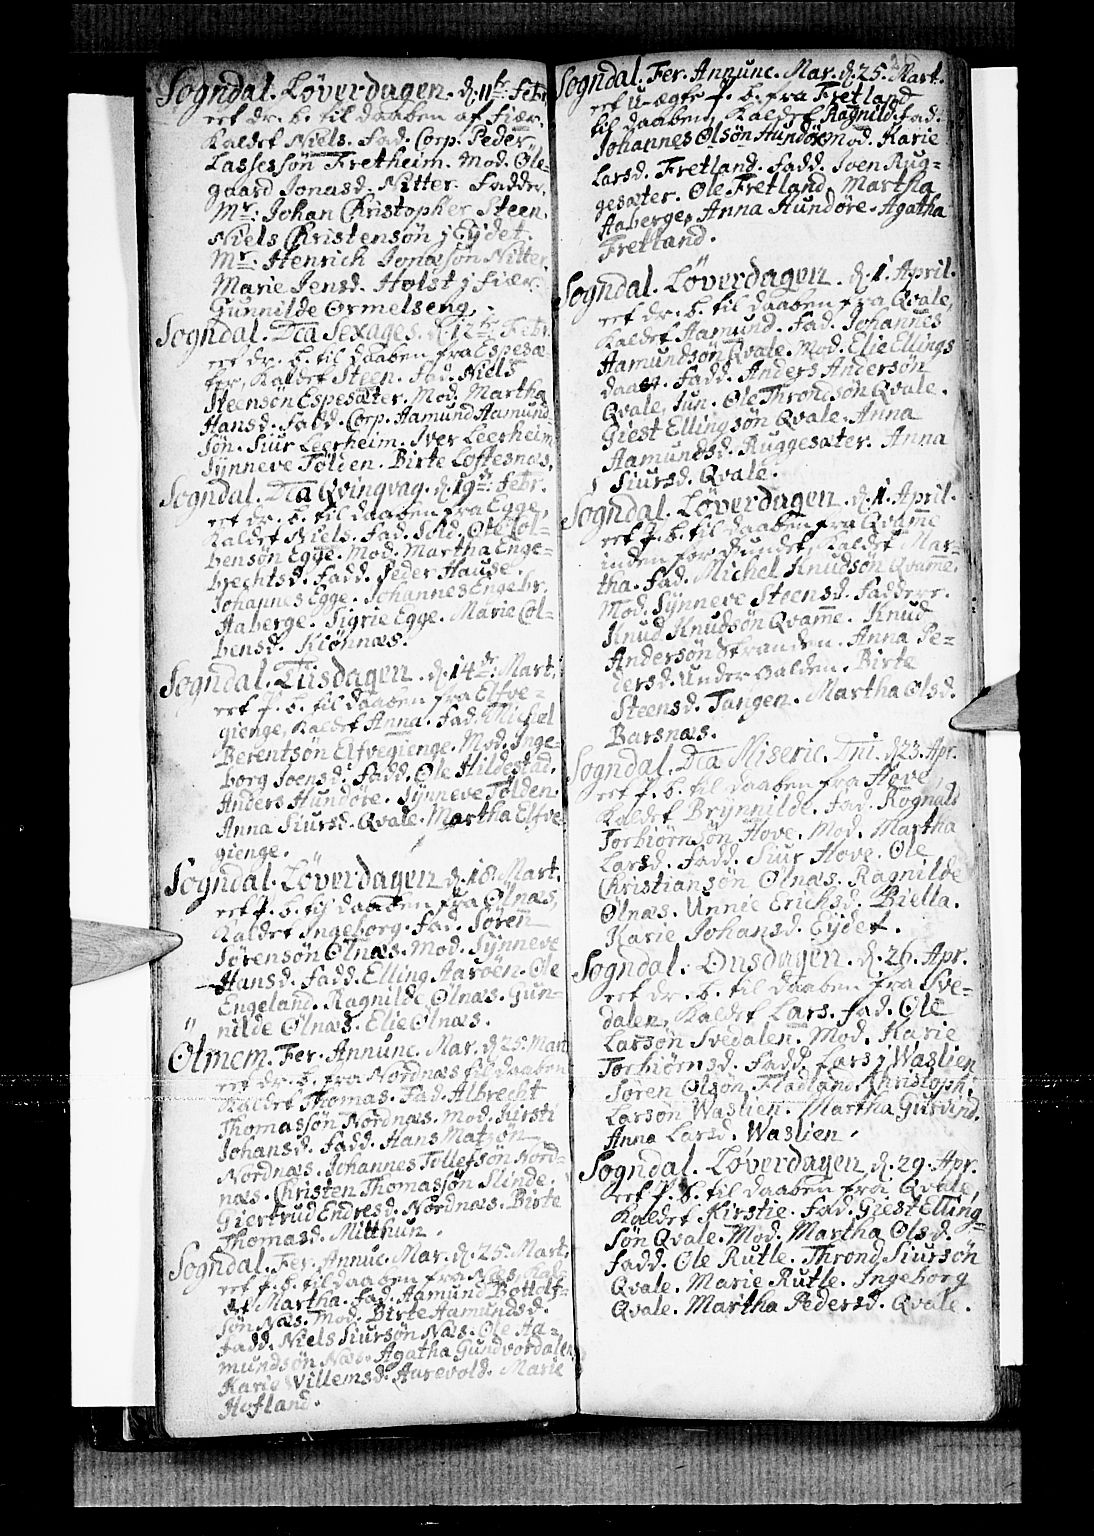 Sogndal. Löverdagen. d. 11te Febr.
eet dr. b. til daaben af Fiær.
Kaldet Niels. Fad. Corp. Peder
Lassessön Fretheim. Mod. Ole-
gaard Jonasd. Nitter. Fadder.
Mr. Johan Christopher Steen.
Niels Christensön j Eydet.
Mr. Henrich Jonæsön Nitter.
Marie Jensd. Holst j Fiær.
Gunnilde Ormelseng.
Sogndal. Dca Sexages. d. 12te Febr.
eet dr. b. til daaben fra Espesæ
ter, Kaldet Steen. Fad. Niels
Steensön Espesæter. Mod. Martha
Hansd. Fadd. Corp. Aamund Aamund
sön. Siur Leerheim. Iver Leerheim
Synneve Tölden. Birte Loftesnæs.
Sogndal. Dca Qvinqvag. d. 19de Febr.
eet dr. b. til daaben fra Egge,
Kaldet Niels. Fad. Sold. Ole Col-
bensön Egge. Mod. Martha Enge-
brechtsd. Fadd. Peder Hause.
Johannes Egge. Johannes Engebr.
Aaberge. Sigrie Egge. Marie Col-
bensd. Kiönnæs.
Sogndal. Tiisdagen d. 14de Mart.
eet p. b. til daaben fra Elfve-
gienge, Kaldet Anna. Fad. Michel
Berentsön Elfvegienge. Mod. Inge-
borg Joensd. Fadd. Ole Hildestad.
Anders Hundöre. Synneve Tölden.
Anna Siursd. Qvale. Martha Elfve
gienge.
Sogndal. Löverdagen d. 18. Mart.
eet p. b. til daaben fra Ölnæs,
Kaldet Ingeborg. Fad. Sören
Sörensön Ölnæs. Mod. Synneve
Hansd. Fadd. Elling Aaröen. Ole
Engeland. Ragnilde Ölnæs. Gun-
nilde Ölnæs. Elie Ölnæs.
Ölmem. Fer. Annunc. Mar. d. 25. Mart
eet dr. b. fra Nordnæs til daaben
Kaldet Thomas. Fad. Albrecht
Thomasjön Nordnæs. Mod. Kirsti
Johansd. Fadd. Hans Matsön
Nordnæs. Johannes Tollefsön Nord-
næs. Christen Thomasjön Slinde.
Giertrud Endresd. Nordnæs. Birte
Thomasd. Mitthun.
Sogndal. Fer. Annuc. Mar. d. 25. Mart.
eet p. b. til daaben fra Næs, Kal-
det Martha. Fad. Aamund Bottolf-
sön Næs. Mod. Birte Aamundsd.
Fadd. Niels Siursön Næs. Ole Aa-
mundsön Næs. Agatha Gundvordalen
Karie Willemsd. Aarevold. Marie
Hofland.
Sogndal. Fer. Annunc. Mar. d. 25. Mart.
eet u-ægte p. b. fra Fretland
til daaben, Kaldet Ragnild. Fad.
Johannes Olsön Hundöre. Mod. Karie
Larsd. Fretland. Fadd. Joen Rug-
gesæter. Ole Fretland. Martha
Aaberge. Anna Hundöre. Agatha
Fretland.
Sogndal. Löverdagen. d. 1. April.
eet dr. b. til daaben fra Qvale,
Kaldet Aamund. Fad. Johannes
Aamundsön Qvale. Mod. Elie Ellings
daat. Fadd. Anders Andersön
Qvale, Jun. Ole Throndsön Qvale.
Giest Ellingsön Qvale. Anna
Aamundsd. Ruggesæter. Anna
Siursd. Qvale.
Sogndal. Löverdagen. d. 1. April.
eet p. b. til daaben fra Qvame
inden for Sundet, Kaldet Mar-
tha. Fad. Michel Knudsön Qvame.
Mod. Synneve Steensd. Faddere.
Knud Knudsön Qvame. Knud
Andersön Stranden. Anna Pe-
dersd. Under-Balden. Birte
Steensd. Tangen. Martha Olsd.
Barsnæs.
Sogndal. Dca Miseric. Dni. d. 23. Apr.
eet p. b. til daaben fra Hove,
Kaldet Brynnilde. Fad. Rognald
Torbiörnsön Hove. Mod. Martha
Larsd. Fadd. Siur Hove. Ole
Christiansön Ölnæs. Ragnilde
Ölnæs. Unnie Erichsd. Biella.
Karie Johansd. Eydet.
Sogndal. Onsdagen. d. 26. Apr.
eet dr. b. til daaben fra Sve-
dalen, Kaldet Lars. Fad. Ole
Larsön Svedalen. Mod. Karie
Torbiörnsd. Fadd. Lars j Waslien
Sören Olson Fladland. Christoph.
Larson Waslien. Martha
Anna Larsd. Waslien.
Sogndal. Löverdagen d. 29. Apr.
eet p. b. til daaben frå Qvale,
Kaldet Kirstie. Fad. Giest Elling-
sön Qvale. Mod. Martha Olsd.
Fadd. Ole Rutle. Thrond Siursön
Qvale. Marie Rutle. Ingeborg
Qvale. Martha Pedersd. Qvale.